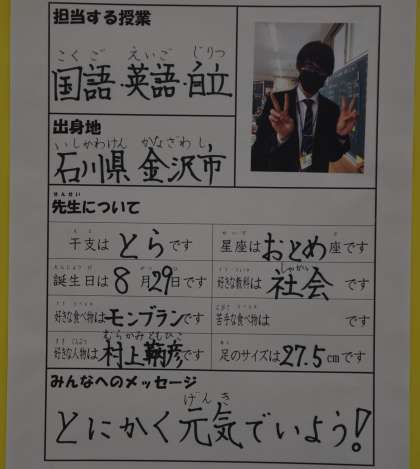 担当する授業
こくご えいご じりつ
国語・英語・自立
出身地
いしかわけん かなざわし
石川県 金沢市
せんせい
先生について
干支は とら です
星座は おとめ 座です
誕生日は 8 月 29 日です
しゃかい
好きな教科は 社会 です
好きな食べ物は モンブラン です
苦手な食べ物は です
むらかみ ともひこ
好きな人物は 村上 鞆彦 です
足のサイズは 27.5 cmです
みんなへのメッセージ
げんき
とにかく元気でいよう!